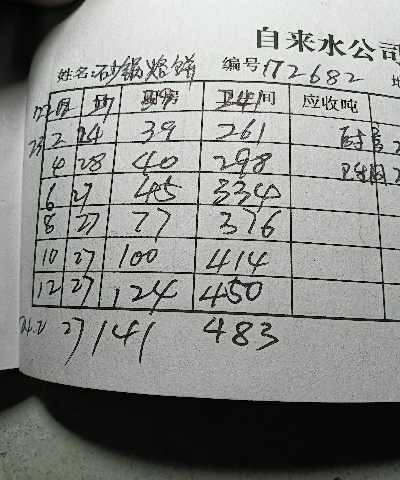 自来水公司
姓名:砂锅焰饼 编号 172682
月 厨房 卫生间 应收吨
2 24 39 261
4 28 40 298
6 27 45 334
8 27 77 376
10 27 100 414
12 27 124 450
27 141 483